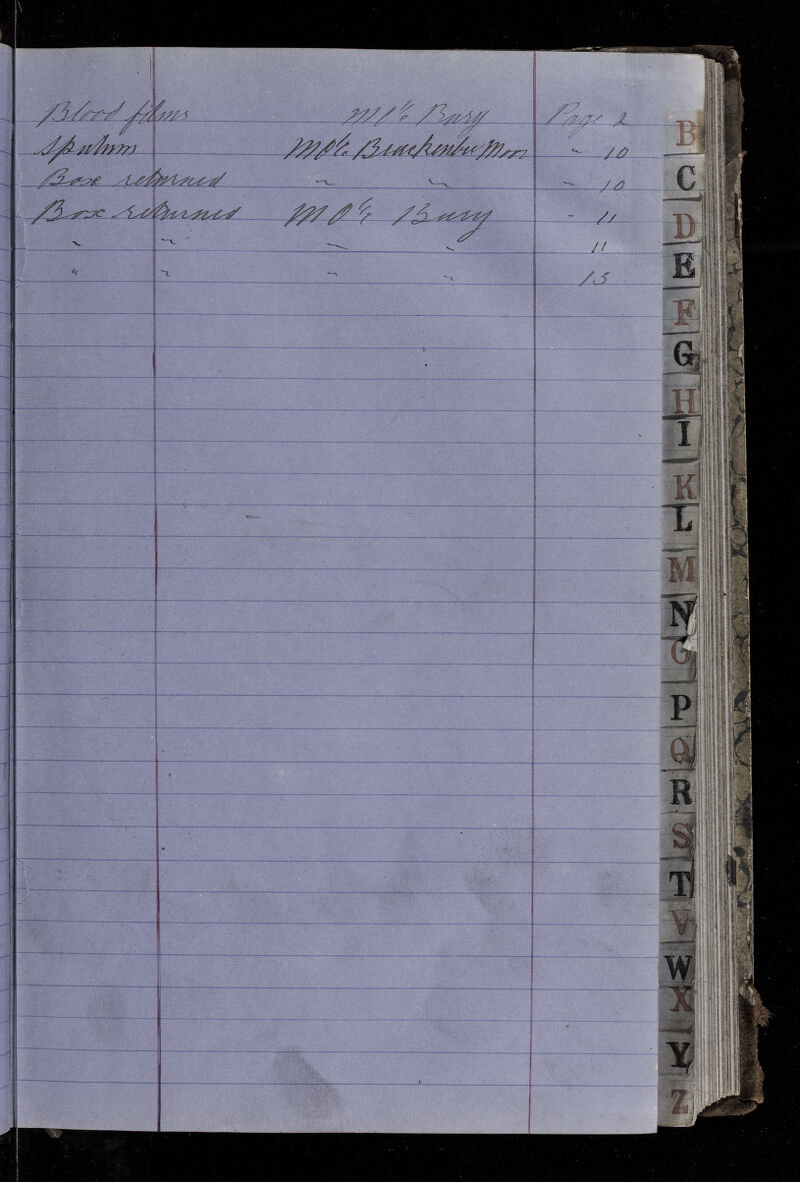 Blood films MO i/c Bury Page 2
Sputum MO i/c Brackenber Moor " 10
Box returned " " " 10
Box returned MO i/c Bury " 11
" " " " 11
" " " " 13
B
C
D
E
F
G
H
I
K
L
M
N
O
P
Q
R
S
T
V
W
X
Y
Z